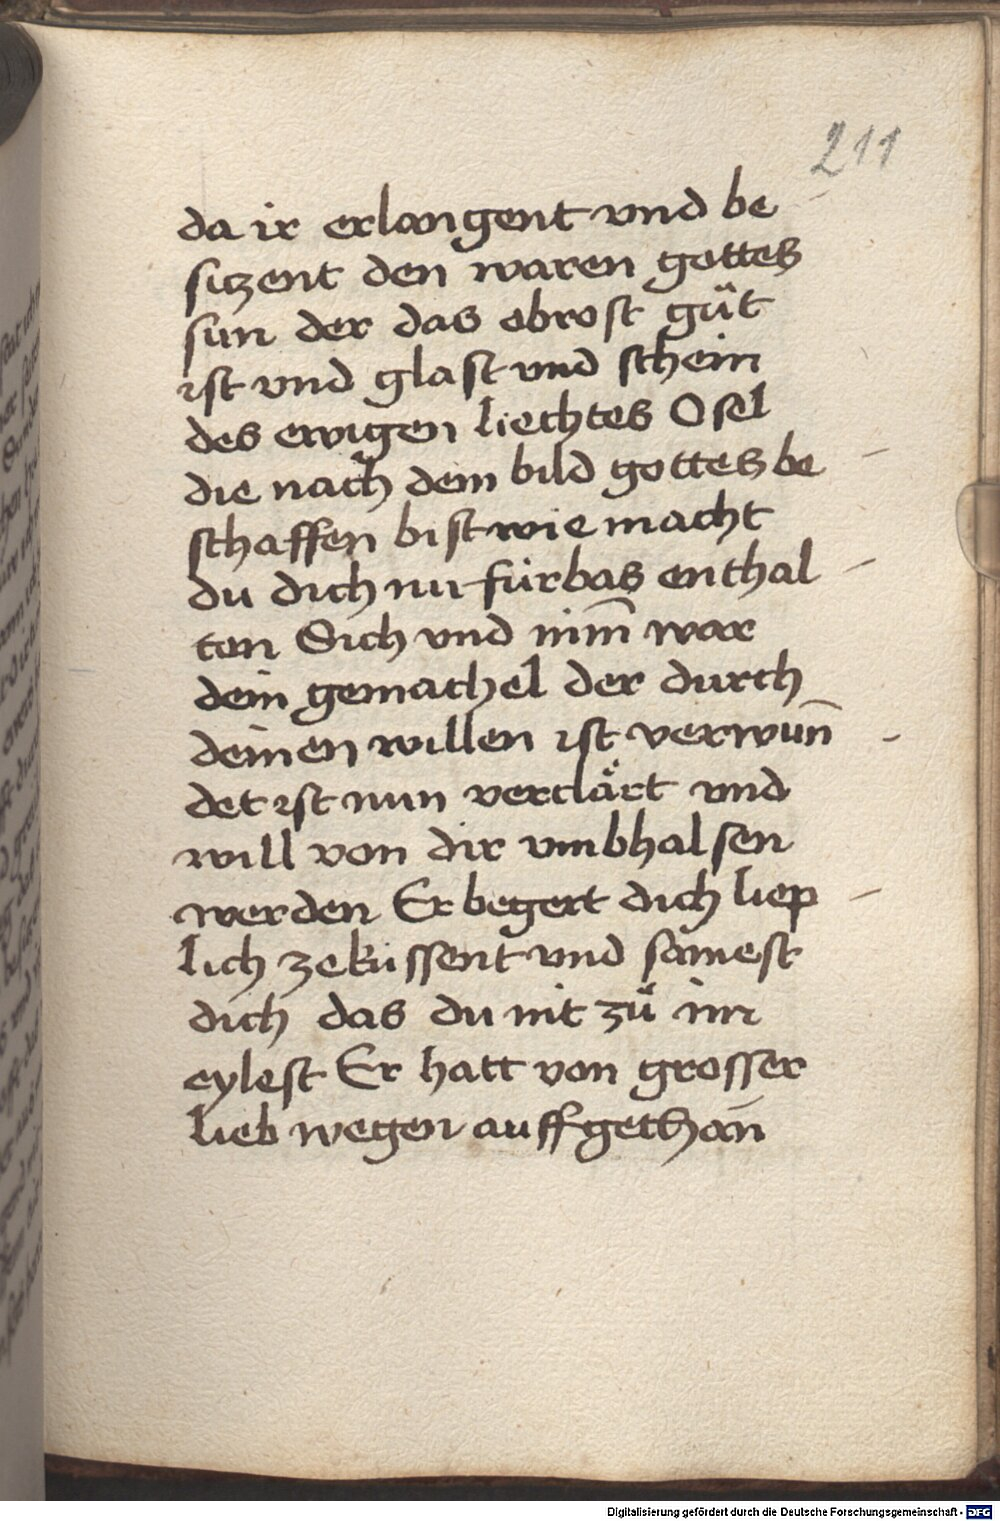 211
da ir erlangent vnd be
sitzent den waren gottes
sun der das obrost gůt
ist vnd glast vnd schein
des ewigen liechtes O sel
die nach dem bild gottes be
schaffen bist wie macht
du dich nu fürbas enthal
ten Sich vnd nim̄ war
dein gemachel der durch
deinen willen ist verwun̄
det ist nun verclärt vnd
will von dir vmbhalsen
werden Er begert dich liep
lich ze küssent vnd sämest
dich das du nit zů im
eylest Er hatt von grosser
lieb wegen auffgethan
Digitalisierung gefördert durch die Deutsche Forschungsgemeinschaft - DFG